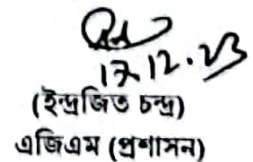 17.12.23
(ইন্দ্রজিত চন্দ্র)
এজিএম (প্রশাসন)